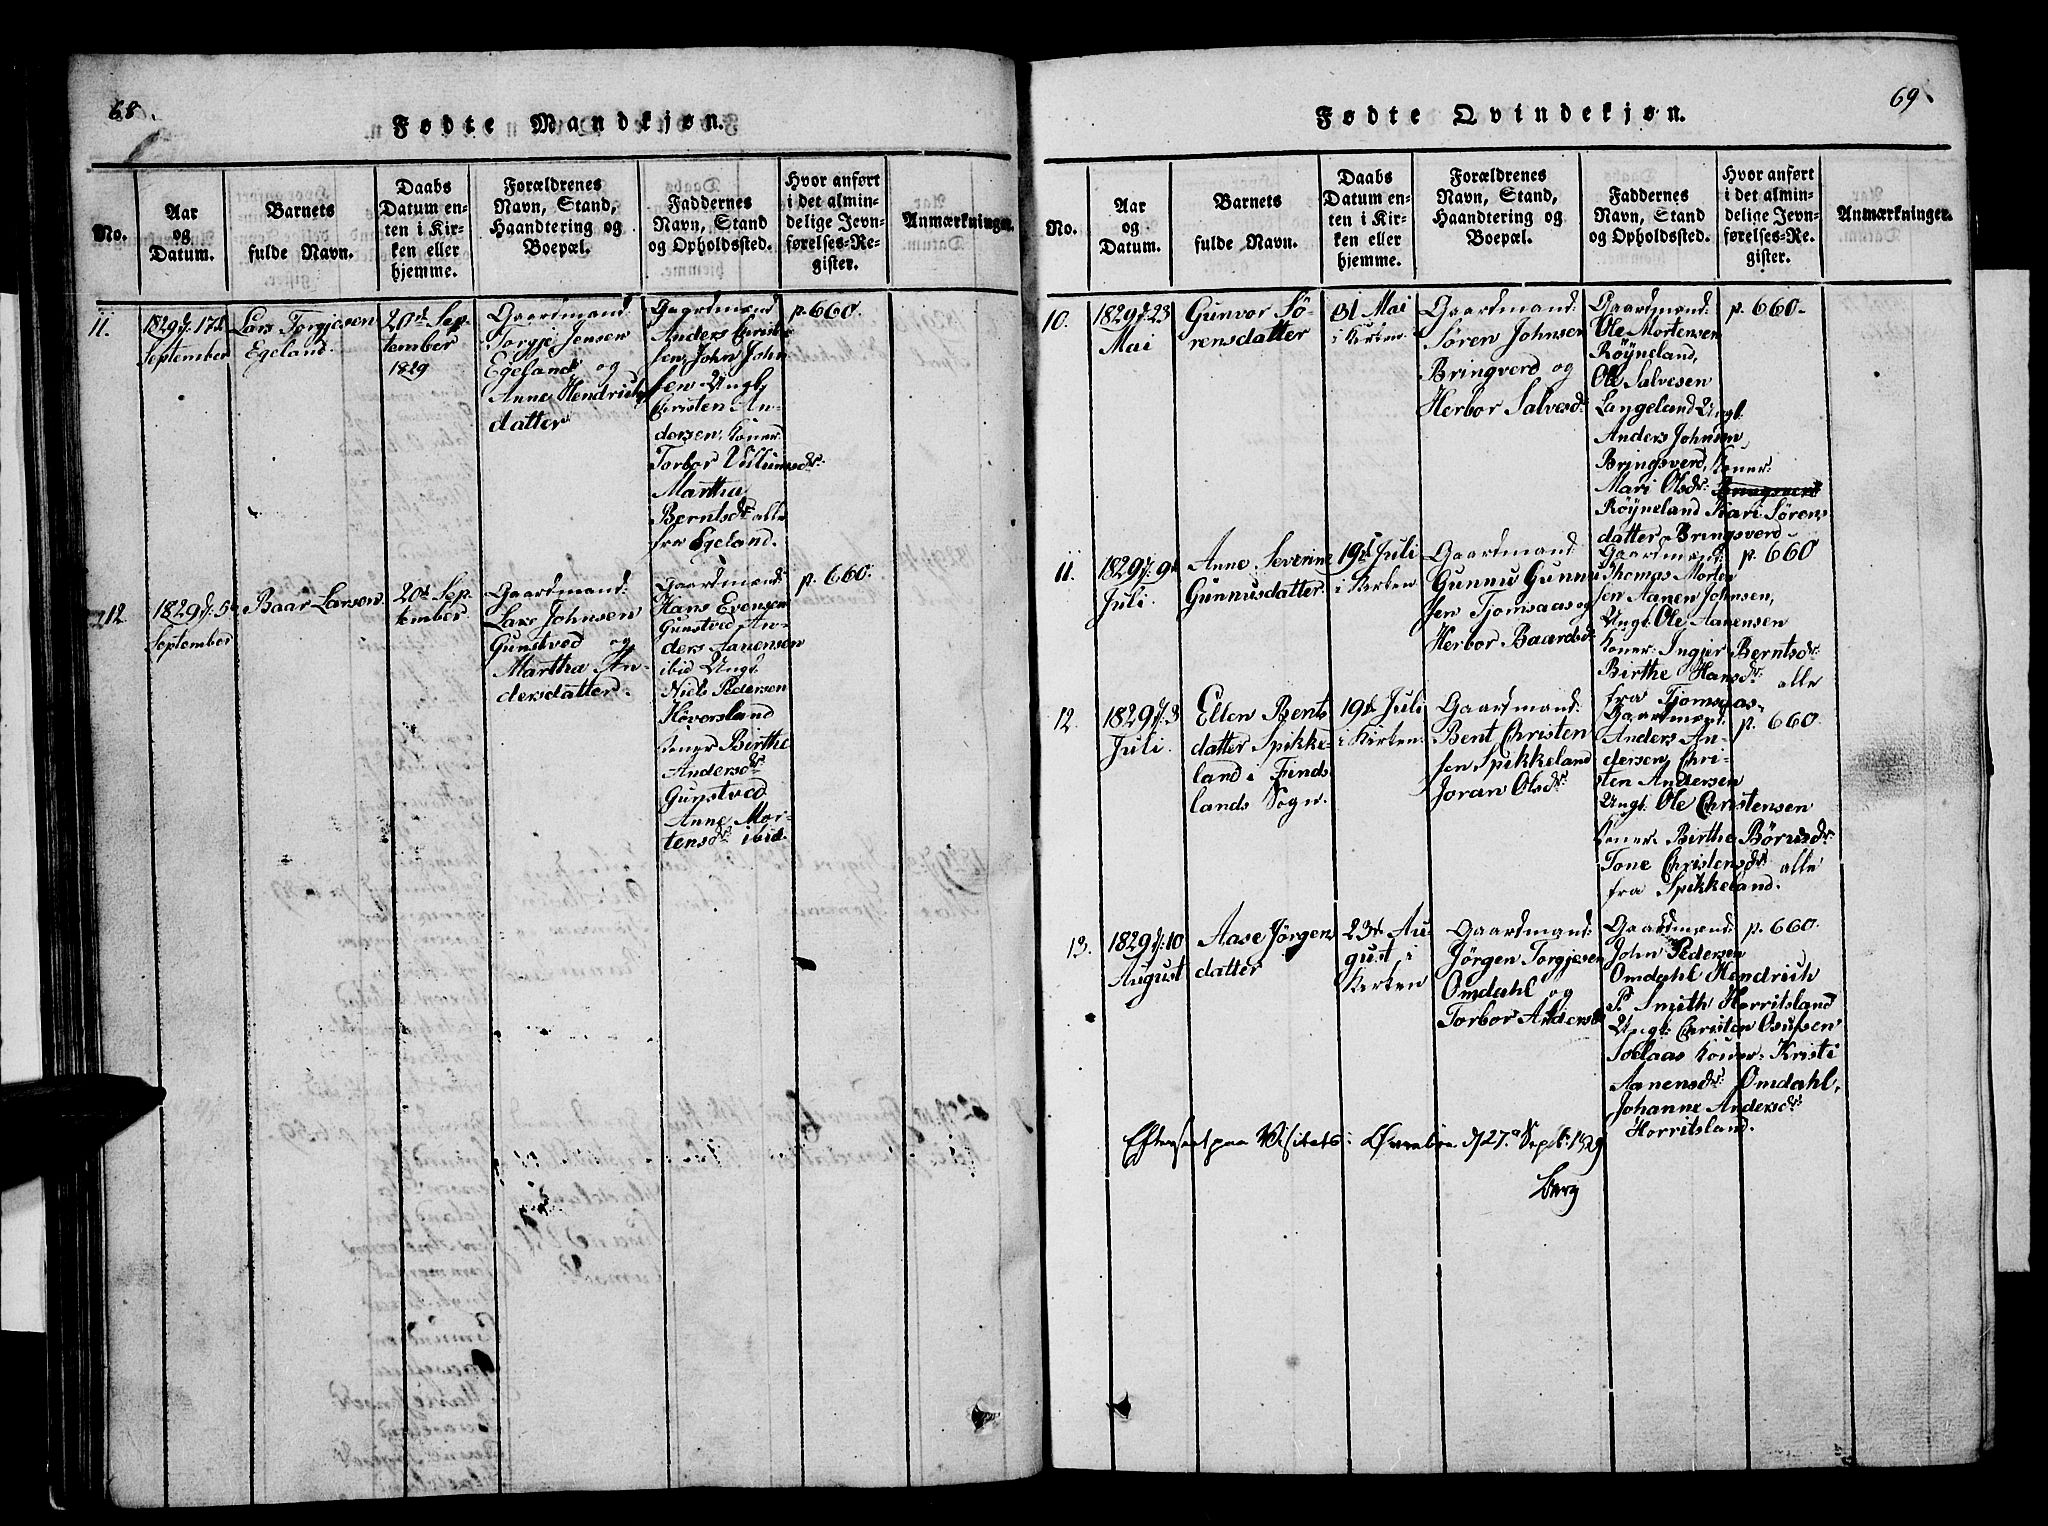 68.
Fødte Mandkjøn.
No.
Aar
og
Datum.
Barnets
fulde Navn.
Daabs
Datum en-
ten i Kir-
ken eller
hjemme.
Forældrenes
Navn, Stand,
Haandtering og
Boepæl.
Faddernes
Navn, Stand
og Opholdssted.
Hvor anført
i det almin-
delige Jevn-
førelses-Re-
gister.
Anmærkninger.
11.
1829 d: 17de
September
Lars Torgjesen
Egeland.
20de Sep-
tember
1829
Gaardmand
Torgje Jensen
Egeland og
Anne Hendrichs
datter
Gaardmænd
Anders Christe
sen, John John
sen Ungk.
Christen An-
dersen, Koner
Torbor Villumsdr:
Martha
Berntsdr alle
fra Egeland.
p. 660.
12.
1829 d: 5te
September
Baar Larsen
20de Sep-
tember
Gaardmand:
Lars Johnsen
Gunstved og
Martha An-
dersdatter.
Gaardmænd:
Hans Evensen
Gunstved An-
ders Aanensen
ibid Ungk.
Niels Pedersen
Høversland
Koner Birthe
Andersdr
Gunstved
Anne Mor-
tensdr ibid.
p. 660.
69.
Fødte Qvindekjøn.
No.
Aar
og
Datum.
Barnets
fulde Navn.
Daabs
Datum en-
ten i Kir-
ken eller
hjemme.
Forældrenes
Navn, Stand,
Haandtering og
Boepæl.
Faddernes
Navn, Stand
og Opholdssted.
Hvor anført
i det almin-
delige Jevn-
førelses-Re-
gister.
Anmærkninger.
10.
1829 d: 23
Mai
Gunvor Sö-
rensdatter
31 Mai
i Kirken
Gaardmand
Søren Johnsen
Bringverd og
Herbor Salvesdr
Gaardmænd:
Ole Mortensen
Röyneland,
Ole Salvesen
Langeland Ungk.
Anders Johnsen
Bringsverd, Koner:
Mari Olsdr: Bringsverd
Röyneland Kari Sørens
datter Bringsverd
p. 660.
11.
1829 d. 9de
Juli.
Anne Severine
Gunnusdatter
19de Juli
i Kirken
Gaardmand
Gunnu Gunnu
sen Tjomsaas og
Herbor Baardsdr
Gaardmænd:
Thomas Morten
sen Aanen Johnsen,
Ungk: Ole Aanensen
Koner: Ingjer Berntsdr:
Birthe Hansdr alle
fra Tjomsaas
p. 660
12.
1829 d. 3
Juli.
Ellen Bents
datter Spikke-
land i Finds
lands Sogn.
19de Juli
i Kirken
Gaardmand:
Bent Christen
sen Spikkeland
Joran Olsdr
Gaardmænd
Anders An-
dersen, Chri-
sten Andersen
Ungk: Ole Christensen
Koner Birthe Börusdr
Tone Christensdr alle
fra Spikkeland.
p. 660.
13.
1829 d: 10
August
Aase Jörgens
datter
23de Au
gust i
Kirken
Gaardmand:
Jörgen Torgjesen
Omdahl og
Torbor Andersdr
Gaardmænd:
John Pedersen
Omdahl Hendrich
P. Smith Horritsland
Ungk: Christen Osufsen
Solaas Koner: Kristi
Aanensdr: Omdahl,
Johanne Andersdr
Horritsland.
p. 660.
Efterseet paa Visitets: Øvrebø d 27. Septb: 1829
Berg